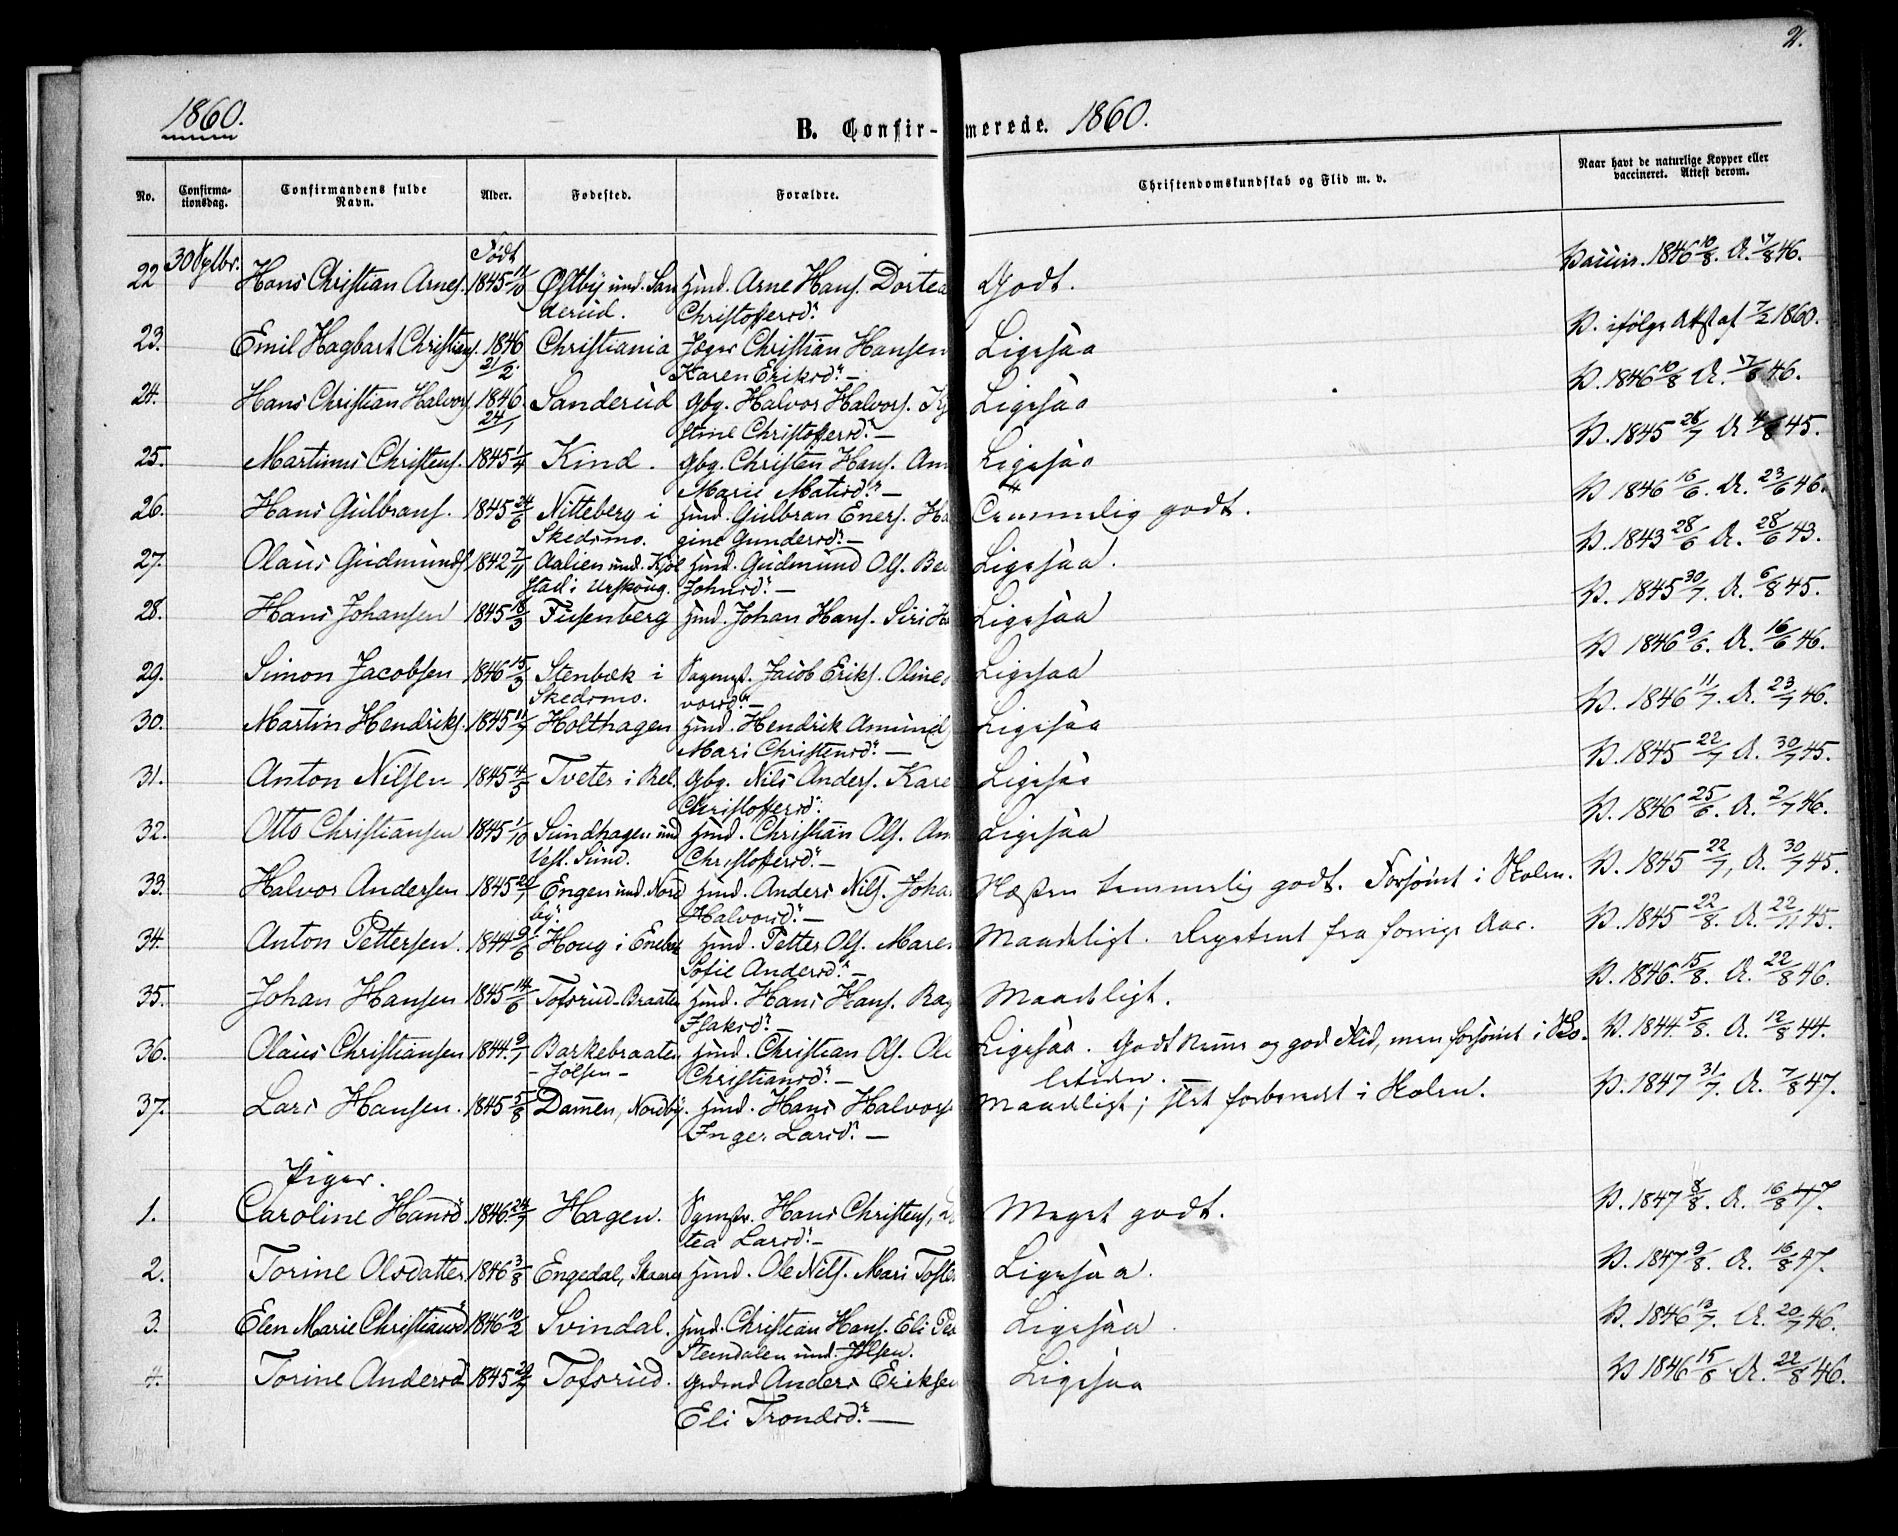 2.
1860. B. Confir- merede. 1860.
No. Confirma-tionsdag. Confirmandens fulde Navn. Alder. Fødested. Forældre. Christendomskundskab og Flid m. v. Naar havt de naturlige Kopper eller vaccineret. Attest derom.
Født
22 30 Hans Christian Arnes. 1845 11/10 Østby und. San Hmd. Arne Hans. Dortea Godt. Vaccin. 1846 10/8. A. 17/8 46.
derud. Christoffersd.
23. Emil Hagbart Christians. 1846 Christiania Jæger Christian Hansen Ligesaa V. ifølge Att af 7/2 1860.
21/2. Karen Eriksd. —
24. Hans Christian Halvors. 1846. Sanderud Gbg. Halvor Halvors. Kj Ligesaa V. 1846 10/8 A. 17/8 46.
24/1 stine Christoffersd. —
25. Martinus Christens. 1845 1/4 Kind. Gbg. Christen Hans. Ann Ligesaa V. 1845 28/7 A 4/8 45.
Marie Matisd. —
26. Hans Gulbrans. 1845 24/6 Nitteberg i Hmd. Gulbran Eners. Ha Temmelig godt. V 1846 16/6. A. 23/6 46.
Skedsmo. gine Gundersd. —
27. Olaus Gudmunds. 1842 7/11 Aalien und. Kjøl Hmd. Gudmund Ols. Be Ligesaa. V. 1843 28/6 A. 28/6 43.
stad i Urskoug. Johnsd. —
28. Hans Johansen 1845 18/3 Tusenberg Hmd. Johan Hans. Siri H Ligesaa V. 1845 30/7. A. 6/8 45.
29. Simon Jacobsen 1846 15/3 Stenbæk i Jacob Eriks. Oline Ligesaa V 1846 9/6. A. 16/6 46.
Skedsmo. vorsd. —
30. Martin Hendriks. 1845 11/7 Holthagen Hmd. Hendrik Amund Ligesaa V. 1846 11/7. A. 23/7 46.
Mari Christensd. —
31. Anton Nilsen 1845 4/5 Tveter i Gbg. Nils Anders. Kare Ligesaa V. 1845 22/7 A. 30/7 45.
Christoffersd.
32. Otto Christiansen 1845 1/10 Sundhagen und Hmd. Christian Ols. An Ligesaa V. 1846 25/6. A. 2/7 46.
Vest. Sund. Christoffersd. —
33. Halvor Andersen 1845 Engen und. Nord Hmd. Anders Nils. Joha Næsten temmelig godt. Forsømt i Skolen. V. 1845 22/7, A. 30/7 45.
by. Halvorsd. —
34. Anton Pettersen. 1844 9/6 Houg i Eneba Hmd. Petter Ols. Maren Maadeligt. fra forrige Aar. V. 1845 22/8. A. 22/11 45.
Sofie Andersd. —
35. Johan Hansen 1845 14/6 Tofsrud-Braaten Hmd. Hans Hans. Rag Maadeligt. V. 1846. 15/8. A. 22/8 46.
Isaksd. —
36. Olaus Christiansen 1844. 9/7 Barkebraaten Hmd. Christian Ols. Ole Ligesaa. Godt Nemme og god Flid, men forsømt i Sko- V. 1844. 5/8. A. 12/8 44.
- Jølsen - Christiansd. — letiden. —
37. Lars Hansen. 1845 5/8 Damen, Nordby. Hmd. Hans Halvors Maadeligt; slet forberedt i Skolen. V. 1847 31/7. A. 7/8 47.
Inger Larsd. —
Piger.
1. Caroline Hansd. 1846. 24/7 Hagen. Hans Christens, D Meget godt. V. 1847 8/8. A. 16/8 47.
tea Larsd. —
2. Torine Olsdatter 1846 3/8 Engedal, Skaarer Hmd. Ole Nils. Mari Tofte Ligesaa. V. 1847 9/8. A. 16/8 47.
3. Elen Marie Christiansd. 1846 12/2 Svindal. Hmd. Christian Hans. Eli Pe Ligesaa V. 1846 13/7. A. 20/7 46.
Stendalen und. Jølsen.
4. Torine Andersd. 1845 Tofsrud. Anders Eriksen Ligesaa V 1846 15/8 A. 22/8 46.
Eli Trondsd. —